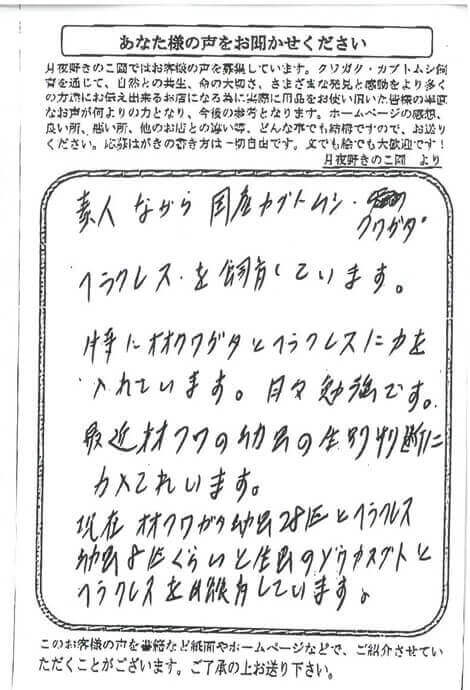 あなた様の声をお聞かせください
月夜野きのこ園ではお客様の声を募集しています。クワガタ・カブトムシ飼
育を通じて、自然との共生、命の大切さ、さまざまな発見と感動をより多く
の方達にお伝え出来るお店になる為に実際に用品をお使い頂いた皆様の率直
なお声が何よりの力となり、今後の参考となります。ホームページの感想、
良い所、悪い所、他のお店との違い等、どんな事でも結構ですので、お送り
ください。応募はがきの書き方は一切自由です。文でも絵でも大歓迎です！
月夜野きのこ園 より
素人 ながら 国産カブトムシ・
クワガタ
ヘラクレス・を飼育しています。
特にオオクワガタとヘラクレスに力を
入れています。日々勉強です。
最近オオクワの幼虫の生別判断に
力入てれいます。
現在 オオクワガタ幼虫28匹とヘラクレス
幼虫8匹くらいと生虫のゾウカブトと
ヘラクレスを しています。
このお客様の声を書籍など紙面やホームページなどで、ご紹介させてい
ただくことがございます。ご了承の上お送り下さい。